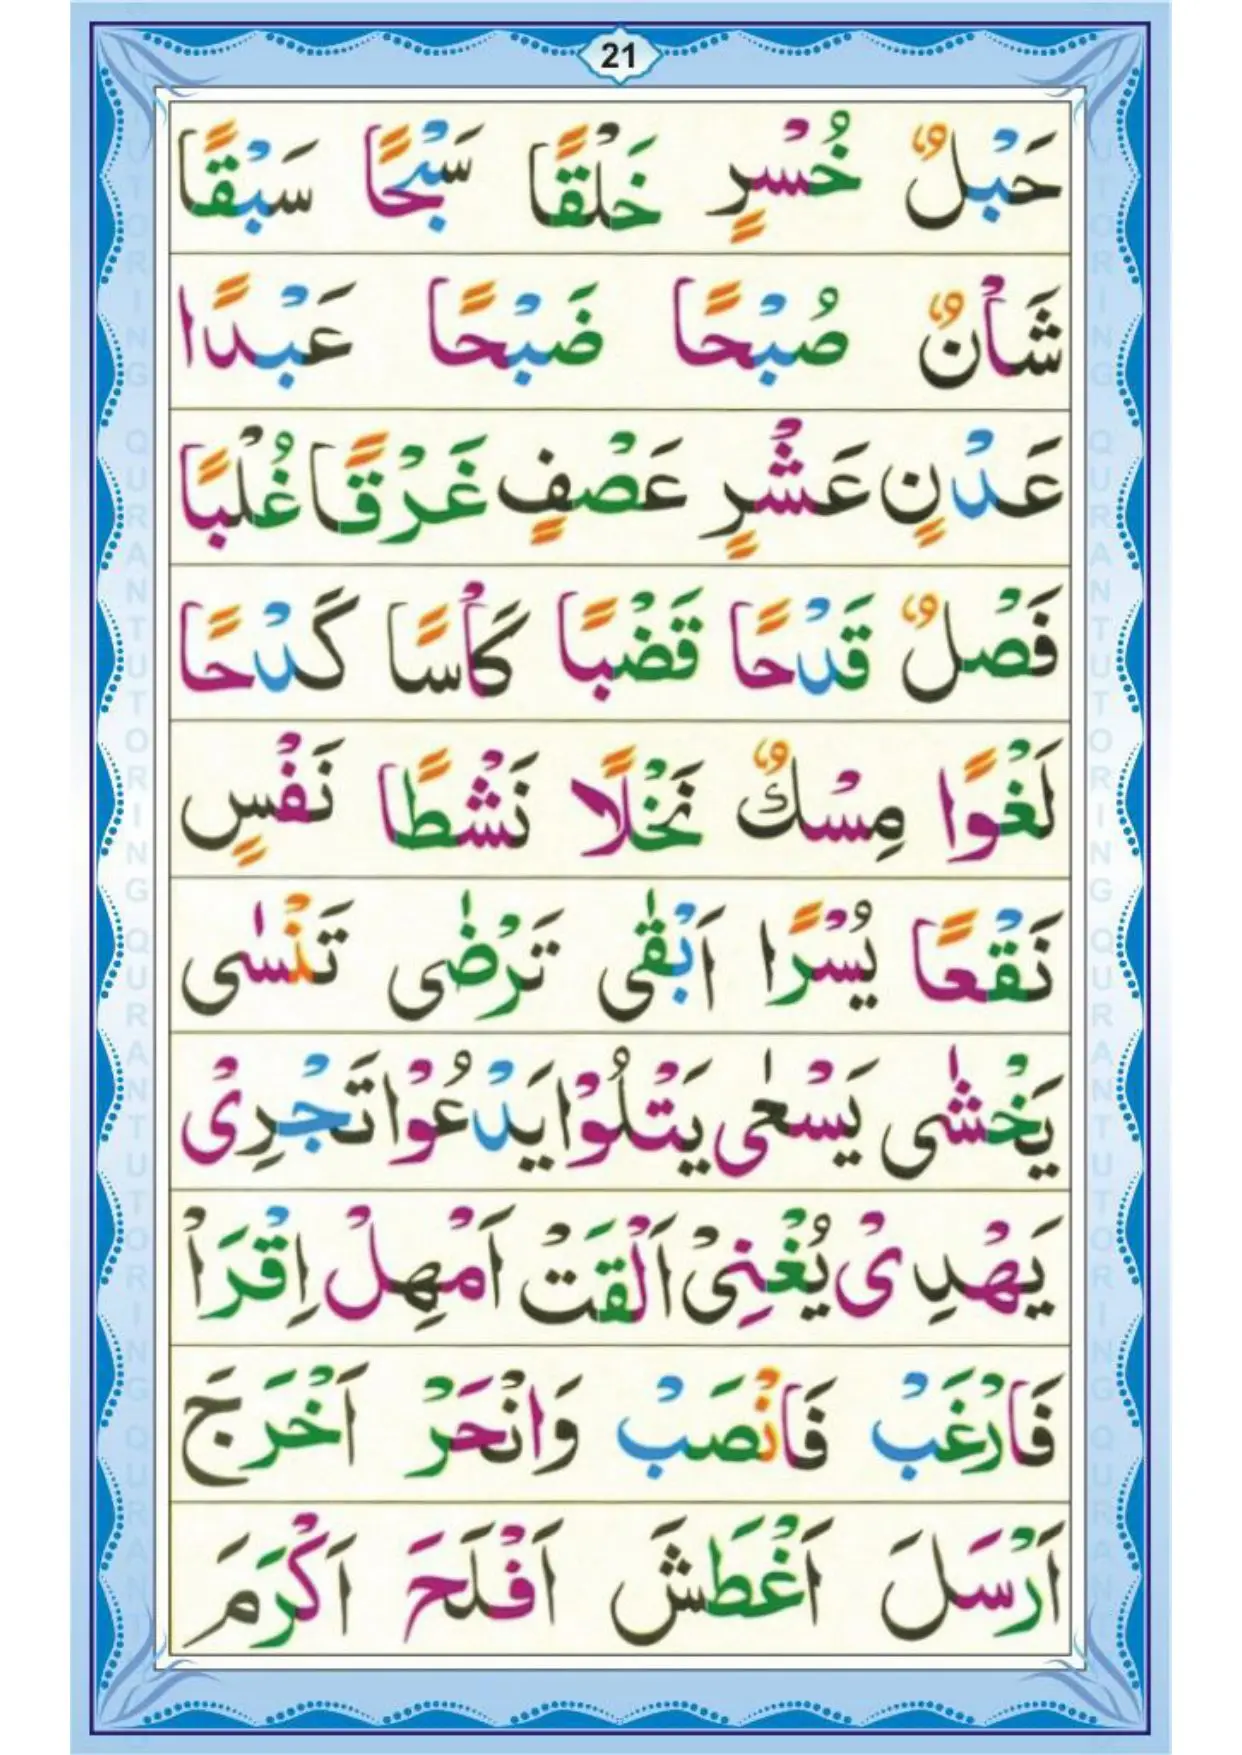 21
حَبْلٌ خُسْرٍ خَلْقًا سَبْحًا سَبْقًا
شَأْنٌ صُبْحًا ضَبْحًا عَبْدًا
عَدْنٍ عَشْرٍ عَصْفٍ غَرْقًا غُلْبًا
فَصْلٌ قَدْحًا قَضْبًا كَأْسًا كَدْحًا
لَغْوًا مِسْكٌ نَخْلًا نَشْطًا نَفْسٍ
نَقْعًا يُسْرًا اَبْقٰى تَرْضٰى تَنْسٰى
يَخْشٰى يَسْعٰى يَتْلُوْا يَدْعُوْا تَجْرِىْ
يَهْدِىْ يُغْنِىْ اَلْقَتْ اَمْهِلْ اِقْرَاْ
فَارْغَبْ فَانْصَبْ وَانْحَرْ اَخْرَجَ
اَرْسَلَ اَغْطَشَ اَفْلَحَ اَكْرَمَ
QURAN TUTORING QURAN TUTORING QURAN
QURAN TUTORING QURAN TUTORING QURAN